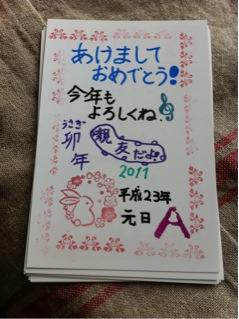 あけまして
おめでとう!
今年も
よろしくね
うさぎ
卯
年
親友だよ!
2011
平成23年
元日
A